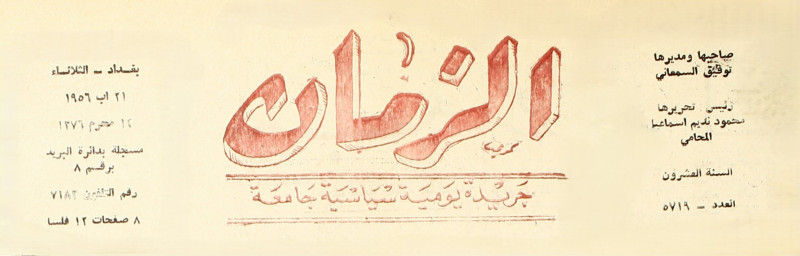 صاحبها ومديرها
توفيق السمعاني
رئيس تحريرها
محمود نديم اسماعيل
المحامي
السنة العشرون
العدد - ٥٧١٩
الزمان
جريدة يومية سياسية جامعة
بغداد - الثلاثاء
٢١ اب ١٩٥٦
١٤ محرم ١٣٧٦
مسجلة بدائرة البريد
برقم ٨
رقم التلفون ٧١٨٢
٨ صفحات ١٢ فلسا